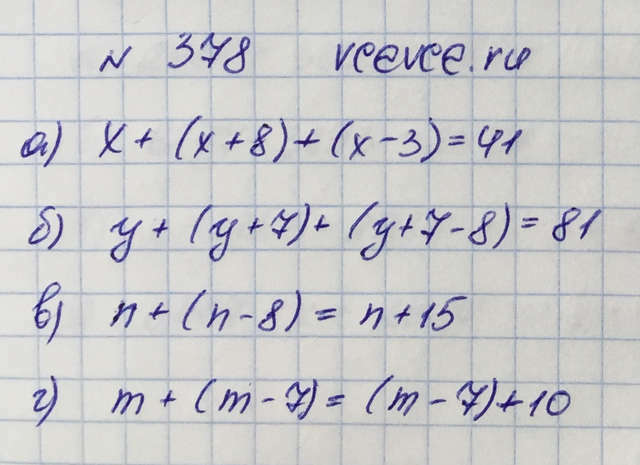 N 378 vcevce.ru
а) x + (x + 8) + (x - 3) = 41
б) y + (y + 7) + (y + 7 - 8) = 81
в) n + (n - 8) = n + 15
г) m + (m - 7) = (m - 7) + 10